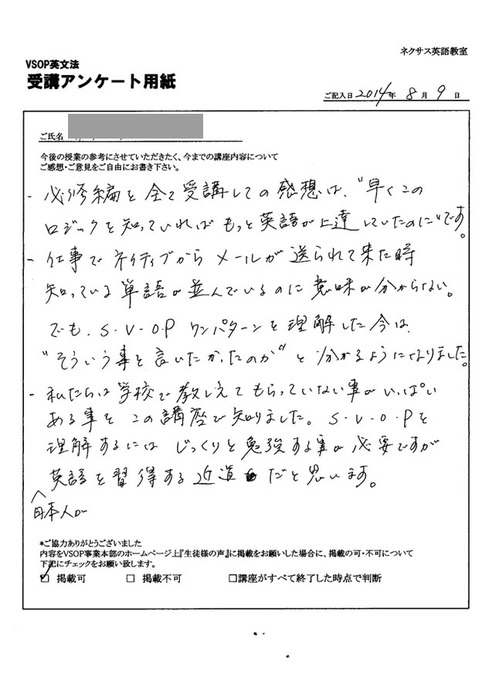 ネクサス英語教室
VSOP英文法
受講アンケート用紙
ご記入日 2014年 8月 9日
ご氏名
今後の授業の参考にさせていただきたく、今までの講座内容について
ご感想・ご意見をご自由にお書き下さい。
- 必修編を全て受講しての感想は、"早くこの
ロジックを知っていればもっと英語が上達していたのに"です。
- 仕事でネイティブからメールが送られて来た時
知っている単語が並んでいるのに意味が分からない。
でも、S・V・O・P ワンパターンを理解した今は
"そういう事を言いたかったのか"と分かるようになりました。
- 私たちは学校で教しえてもらっていない事がいっぱい
ある事をこの講座で知りました。S・V・O・Pを
理解するには じっくりと勉強する事が必要ですが
英語を習得する近道だと思います。
日本人が
*ご協力ありがとうございました
内容をVSOP事業本部のホームページ上『生徒様の声』に掲載をお願いした場合に、掲載の可・不可について
下記にチェックをお願い致します。
☑ 掲載可 □ 掲載不可 □講座がすべて終了した時点で判断